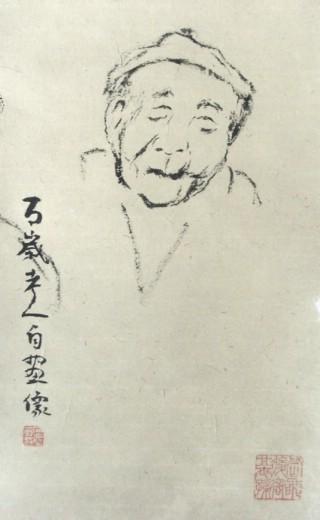 百歳老人自畫像